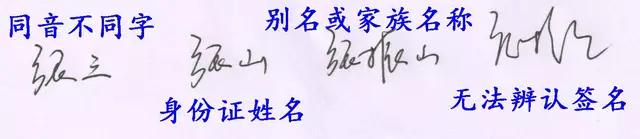 同音不同字
别名或家族名称
张三
张山
张振山
身份证姓名
无法辨认签名